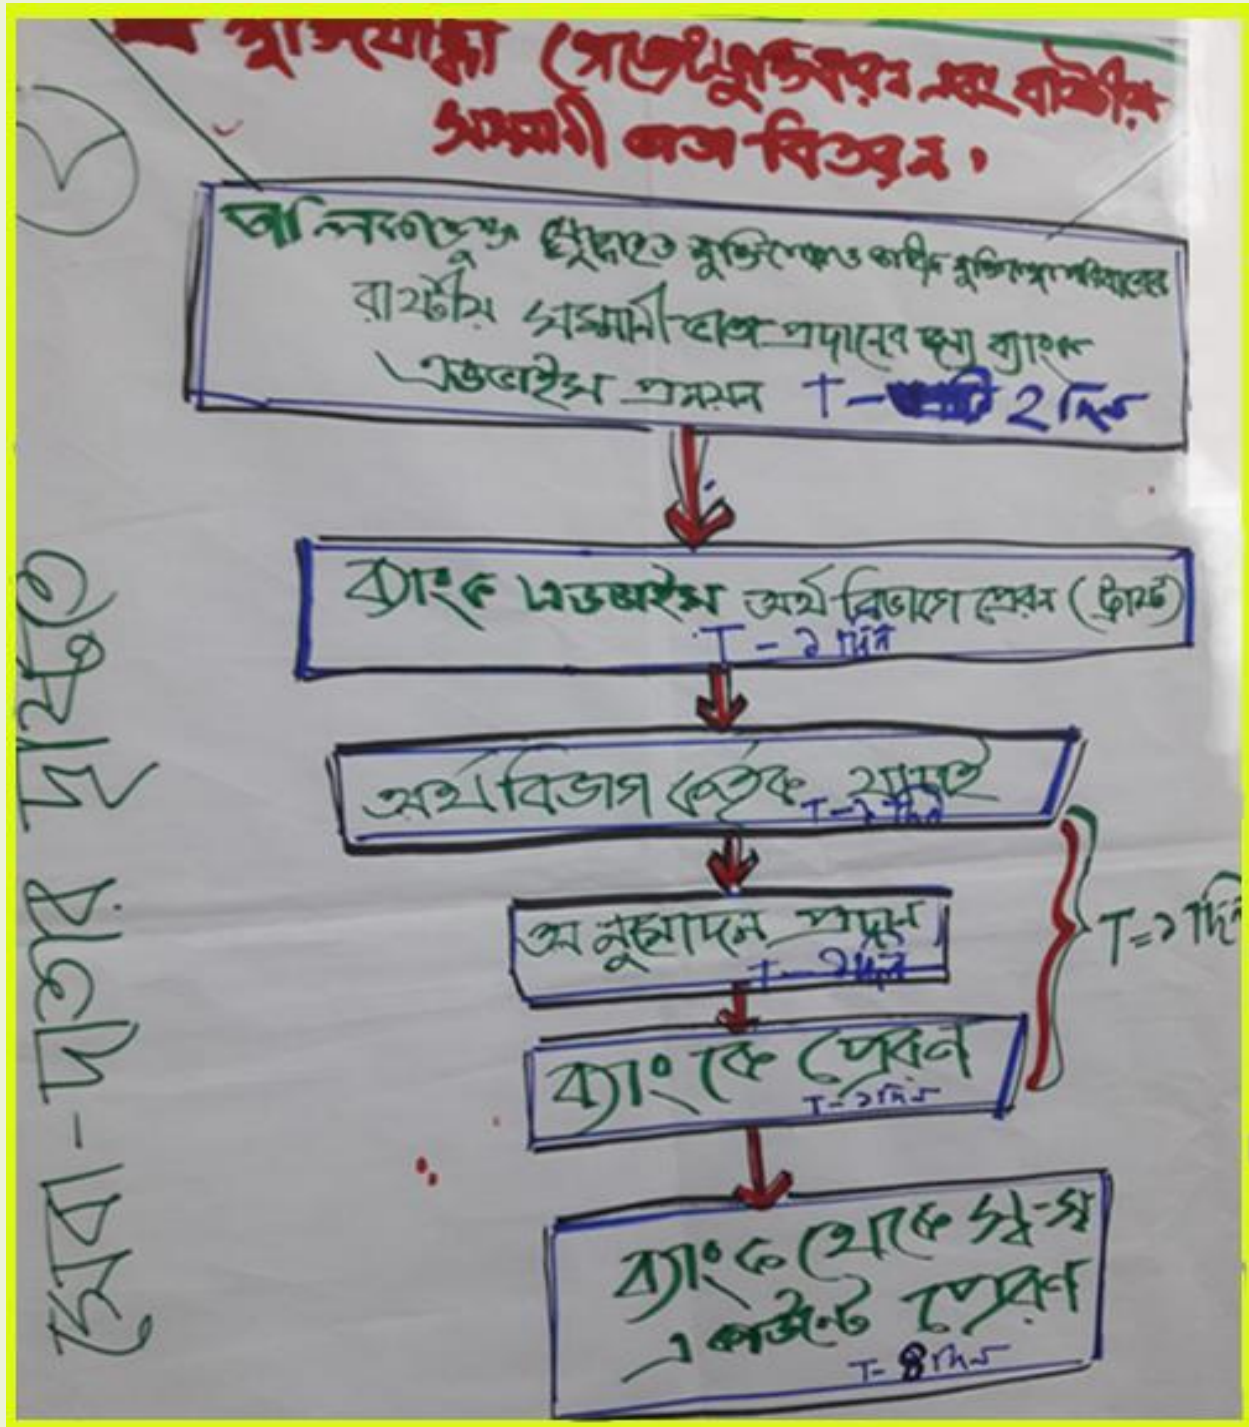 মুক্তিযোদ্ধা গেজেটভুক্তকরন এবং রাষ্টীয়
সম্মানী ভাতা বিতরন।
তালিকাভুক্ত যুদ্ধাহত মুক্তিযোদ্ধা ও শহীদ মুক্তিযোদ্ধা পরিবারের
রাষ্টীয় সম্মানী ভাতা প্রদানের জন্য ব্যাংক
এডভাইস প্রনয়ন T- 2 দিন
ব্যাংক এডভাইস অর্থ বিভাগে প্রেরন (ট্রাস্ট)
T - ১ দিন
অর্থ বিভাগ কর্তৃক যাচাই
T-১ দিন
অনুমোদন প্রদান
T - ১ দিন
T=১ দিন
ব্যাংকে প্রেরণ
T-১ দিন
ব্যাংক থেকে স্ব-স্ব
একাউন্টে প্রেরণ
T- ৪ দিন
সেবা-দাতার দৃষ্টিতে